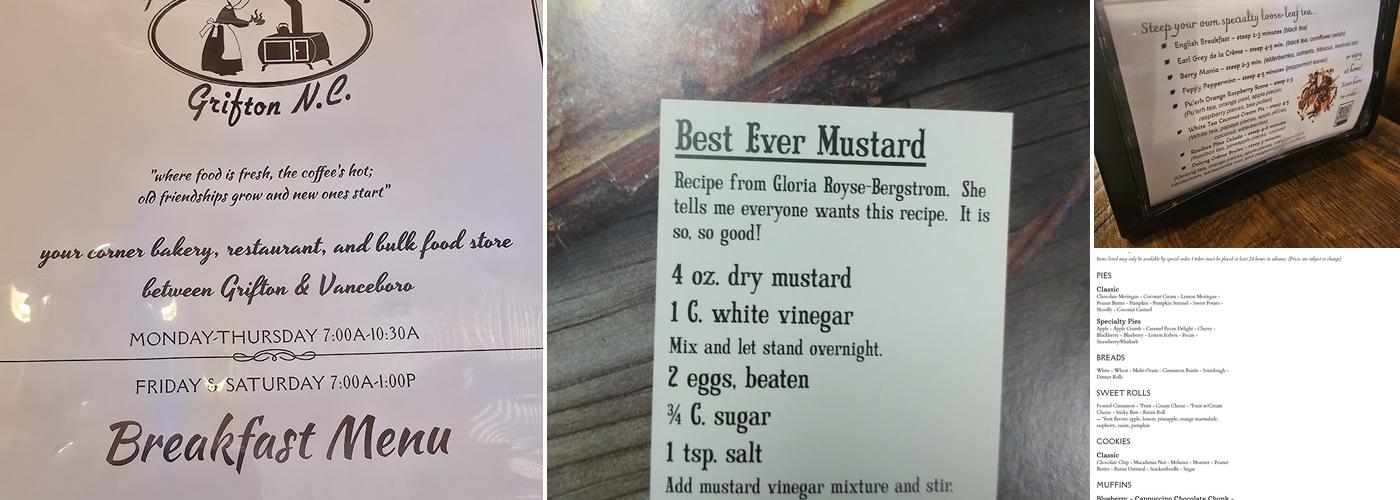 Grifton N.C.
"where food is fresh, the coffee's hot;
old friendships grow and new ones start"
your corner bakery, restaurant, and bulk food store
between Grifton & Vanceboro
MONDAY-THURSDAY 7:00A-10:30A
FRIDAY & SATURDAY 7:00A-1:00P
Breakfast Menu
Best Ever Mustard
Recipe from Gloria Royse-Bergstrom. She
tells me everyone wants this recipe. It is
so, so good!
4 oz. dry mustard
1 C. white vinegar
Mix and let stand overnight.
2 eggs, beaten
¾ C. sugar
1 tsp. salt
Add mustard vinegar mixture and stir.
Steep your own specialty loose-leaf tea...
English Breakfast - steep 2-3 minutes (black tea)
Earl Grey de la Crème - steep 4-5 min. (black tea, cornflower petals)
Berry Mania - steep 4-5 min. (elderberries, currants, hibiscus, beetroot bits)
Peppy Peppermint - steep 4-5 minutes (peppermint leaves)
Pu'erh Orange Raspberry Scone - steep 2-3
(Pu'erh tea, orange peel, apple pieces,
raspberry pieces, bee pollen)
White Tea Coconut Cream Pie - steep 4-5
(White tea, papaya pieces, apple pieces,
coconut, elderberries)
Rooibos Pina Colada - steep 4-5 minutes
(Rooibos tea, pineapple pieces, coconut)
Oolong Crème Brulee - steep 3 minutes
or enjoy
at home!
Items listed may only be available by special order. Orders must be placed at least 24 hours in advance. (Prices are subject to change)
PIES
Classic
Chocolate Meringue - Coconut Cream - Lemon Meringue -
Peanut Butter - Pumpkin - Pumpkin Streusel - Sweet Potato -
Shoofly - Coconut Custard
Specialty Pies
Apple - Apple Crumb - Caramel Pecan Delight - Cherry -
Blackberry - Blueberry - Lemon Icebox - Pecan -
Strawberry/Rhubarb
BREADS
White - Wheat - Multi-Grain - Cinnamon Raisin - Sourdough -
Dinner Rolls
SWEET ROLLS
Frosted Cinnamon - *Fruit - Cream Cheese - *Fruit w/Cream
Cheese - Sticky Bun - Raisin Roll
— *fruit flavors: apple, lemon, pineapple, orange marmalade,
raspberry, raisin, pumpkin
COOKIES
Classic
Chocolate Chip - Macadamia Nut - Molasses - Monster - Peanut
Butter - Raisin Oatmeal - Snickerdoodle - Sugar
MUFFINS
Blueberry - Cappuccino Chocolate Chunk -